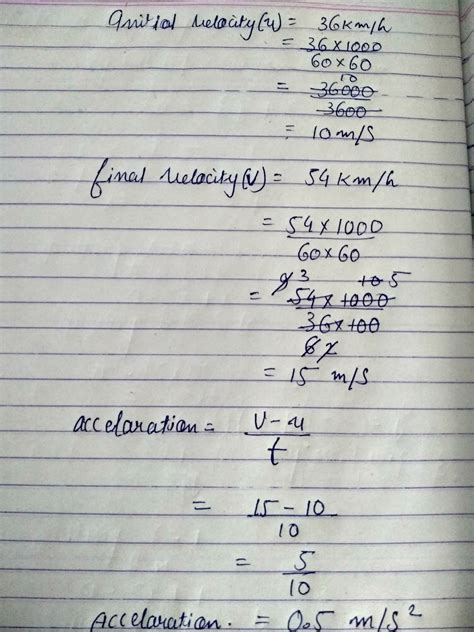 Initial velocity(u) = 36km/h
= 36×1000
60×60
10
= 36000
3600
= 10 m/s
final velocity(v) = 54 km/h
= 54×1000
60×60
9 3 10 5
= 54×1000
36×100
6 2
= 15 m/s
accelaration = v-u
t
= 15-10
10
= 5
10
Accelaration. = 0.5 m/s²